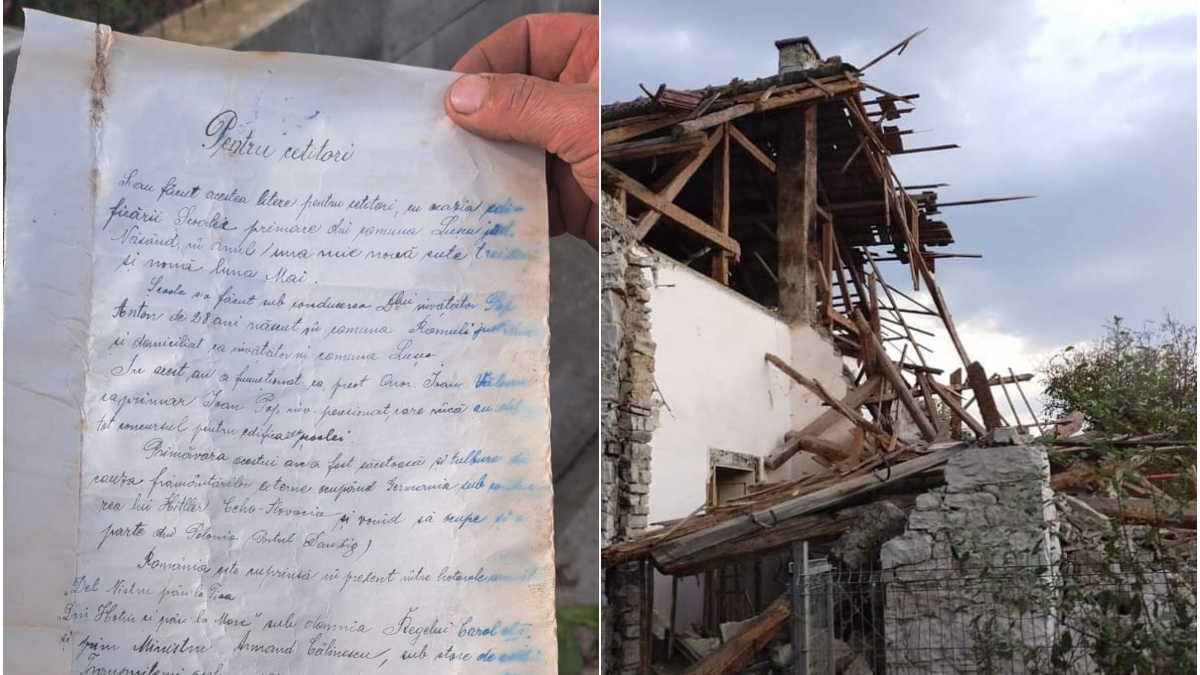 Pentru cetitori
S-au făcut acestea litere pentru cetitori, cu ocazia edi-
ficării Scoalei primare din comuna Lușca jud.
Năsăud, în anul una mie nouă sute treizeci
și nouă luna Mai.
Scoala s-a făcut sub conducerea Dlui învățător Pop
Anton de 28 ani născut în comuna Romuli jud.
și domiciliat ca învățător în comuna Lușca
În acest an a functionat ca preot Onor. Ioan
ca primar Ioan Pop inv. pensionat, care încă au dat
tot concursul pentru edificarea școlei.
Primăvara acestui an a fost săcetoasă și tulbure din
cauza frământărilor externe ocupând Germania sub
rea lui Hittler Ceho-Slovacia și voind să ocupe și o
parte din Polonia (Portul Danzig)
România este cuprinsă în prezent între hotarele
"Del Nistru pân la Tisa
Din Hotin și pân la Mare" sub domnia Regelui Carol al II.
și prim Ministru Armand Călinescu, sub stare de